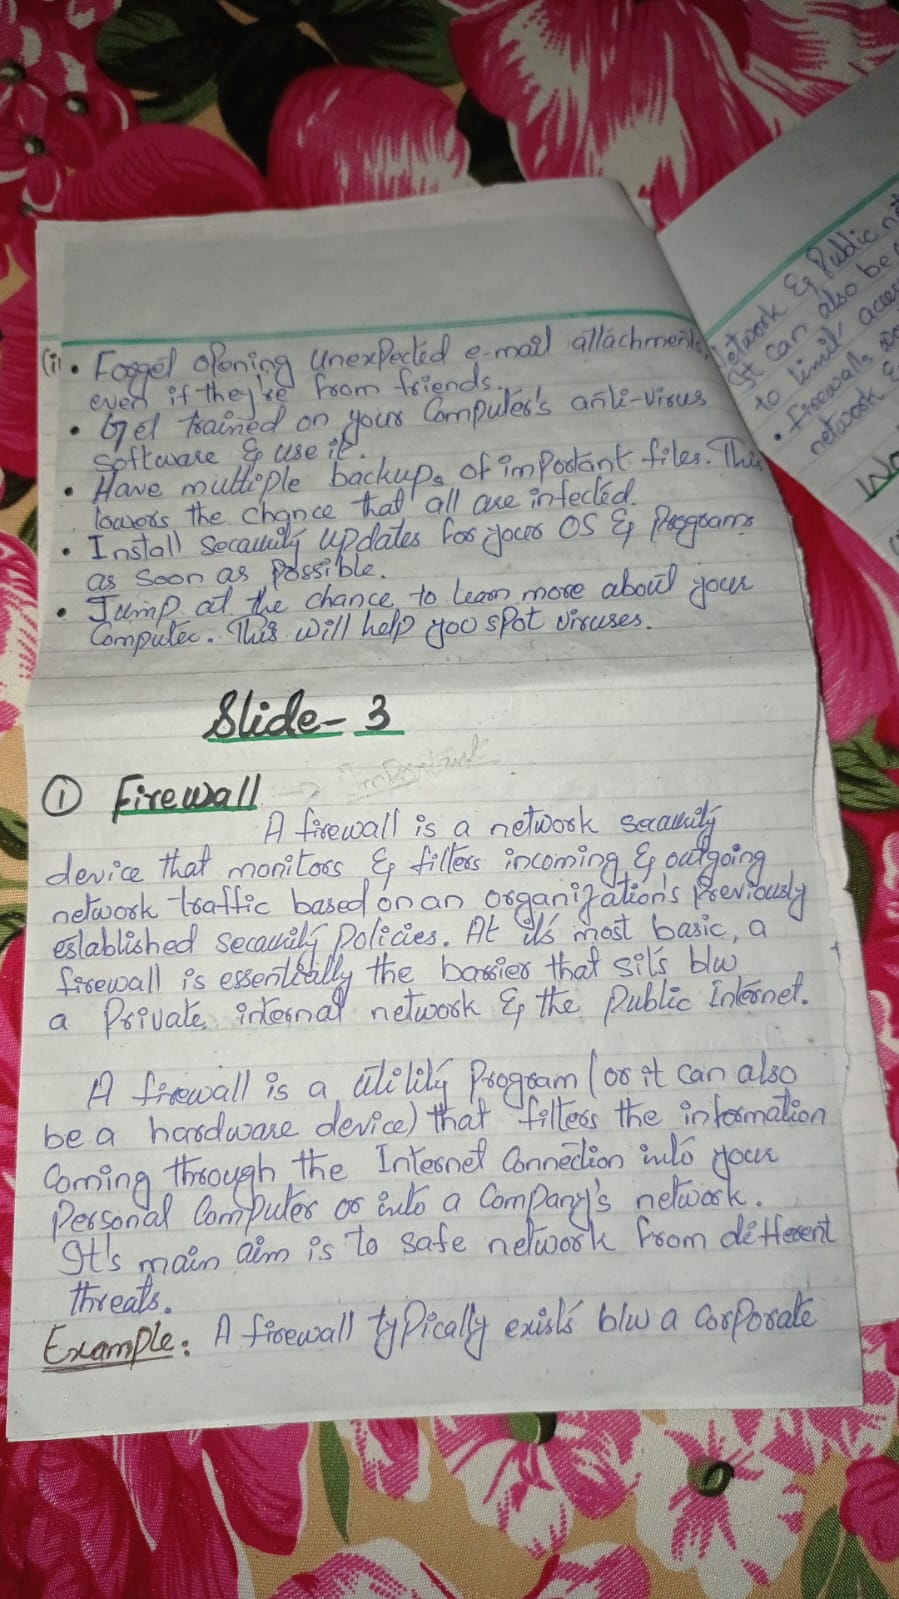 (i) • Forget opening unexpected e-mail attachments,
even if they're from friends.
• Get trained on your Computer's anti-virus
software & use it.
• Have multiple backups of important files. This
lowers the chance that all are infected.
• Install Secauity updates for your OS & Programs
as soon as possible.
• Jump at the chance to learn more about your
Computer. This will help you spot viruses.
Slide-3
① Firewall → Important
A firewall is a network secauity
device that monitors & filters incoming & outgoing
network traffic based on an organization's Previously
established secauity policies. At it's most basic, a
firewall is essentially the barrier that sits b/w
a Private internal network & the Public Internet.
A firewall is a utility Program (or it can also
be a hardware device) that filters the information
Coming through the Internet Connection into your
Personal Computer or into a Company's network.
It's main aim is to safe network from different
threats.
Example: A firewall typically exists b/w a Corporate
network & Public
It can also be
to limit
• Firewalls
network &